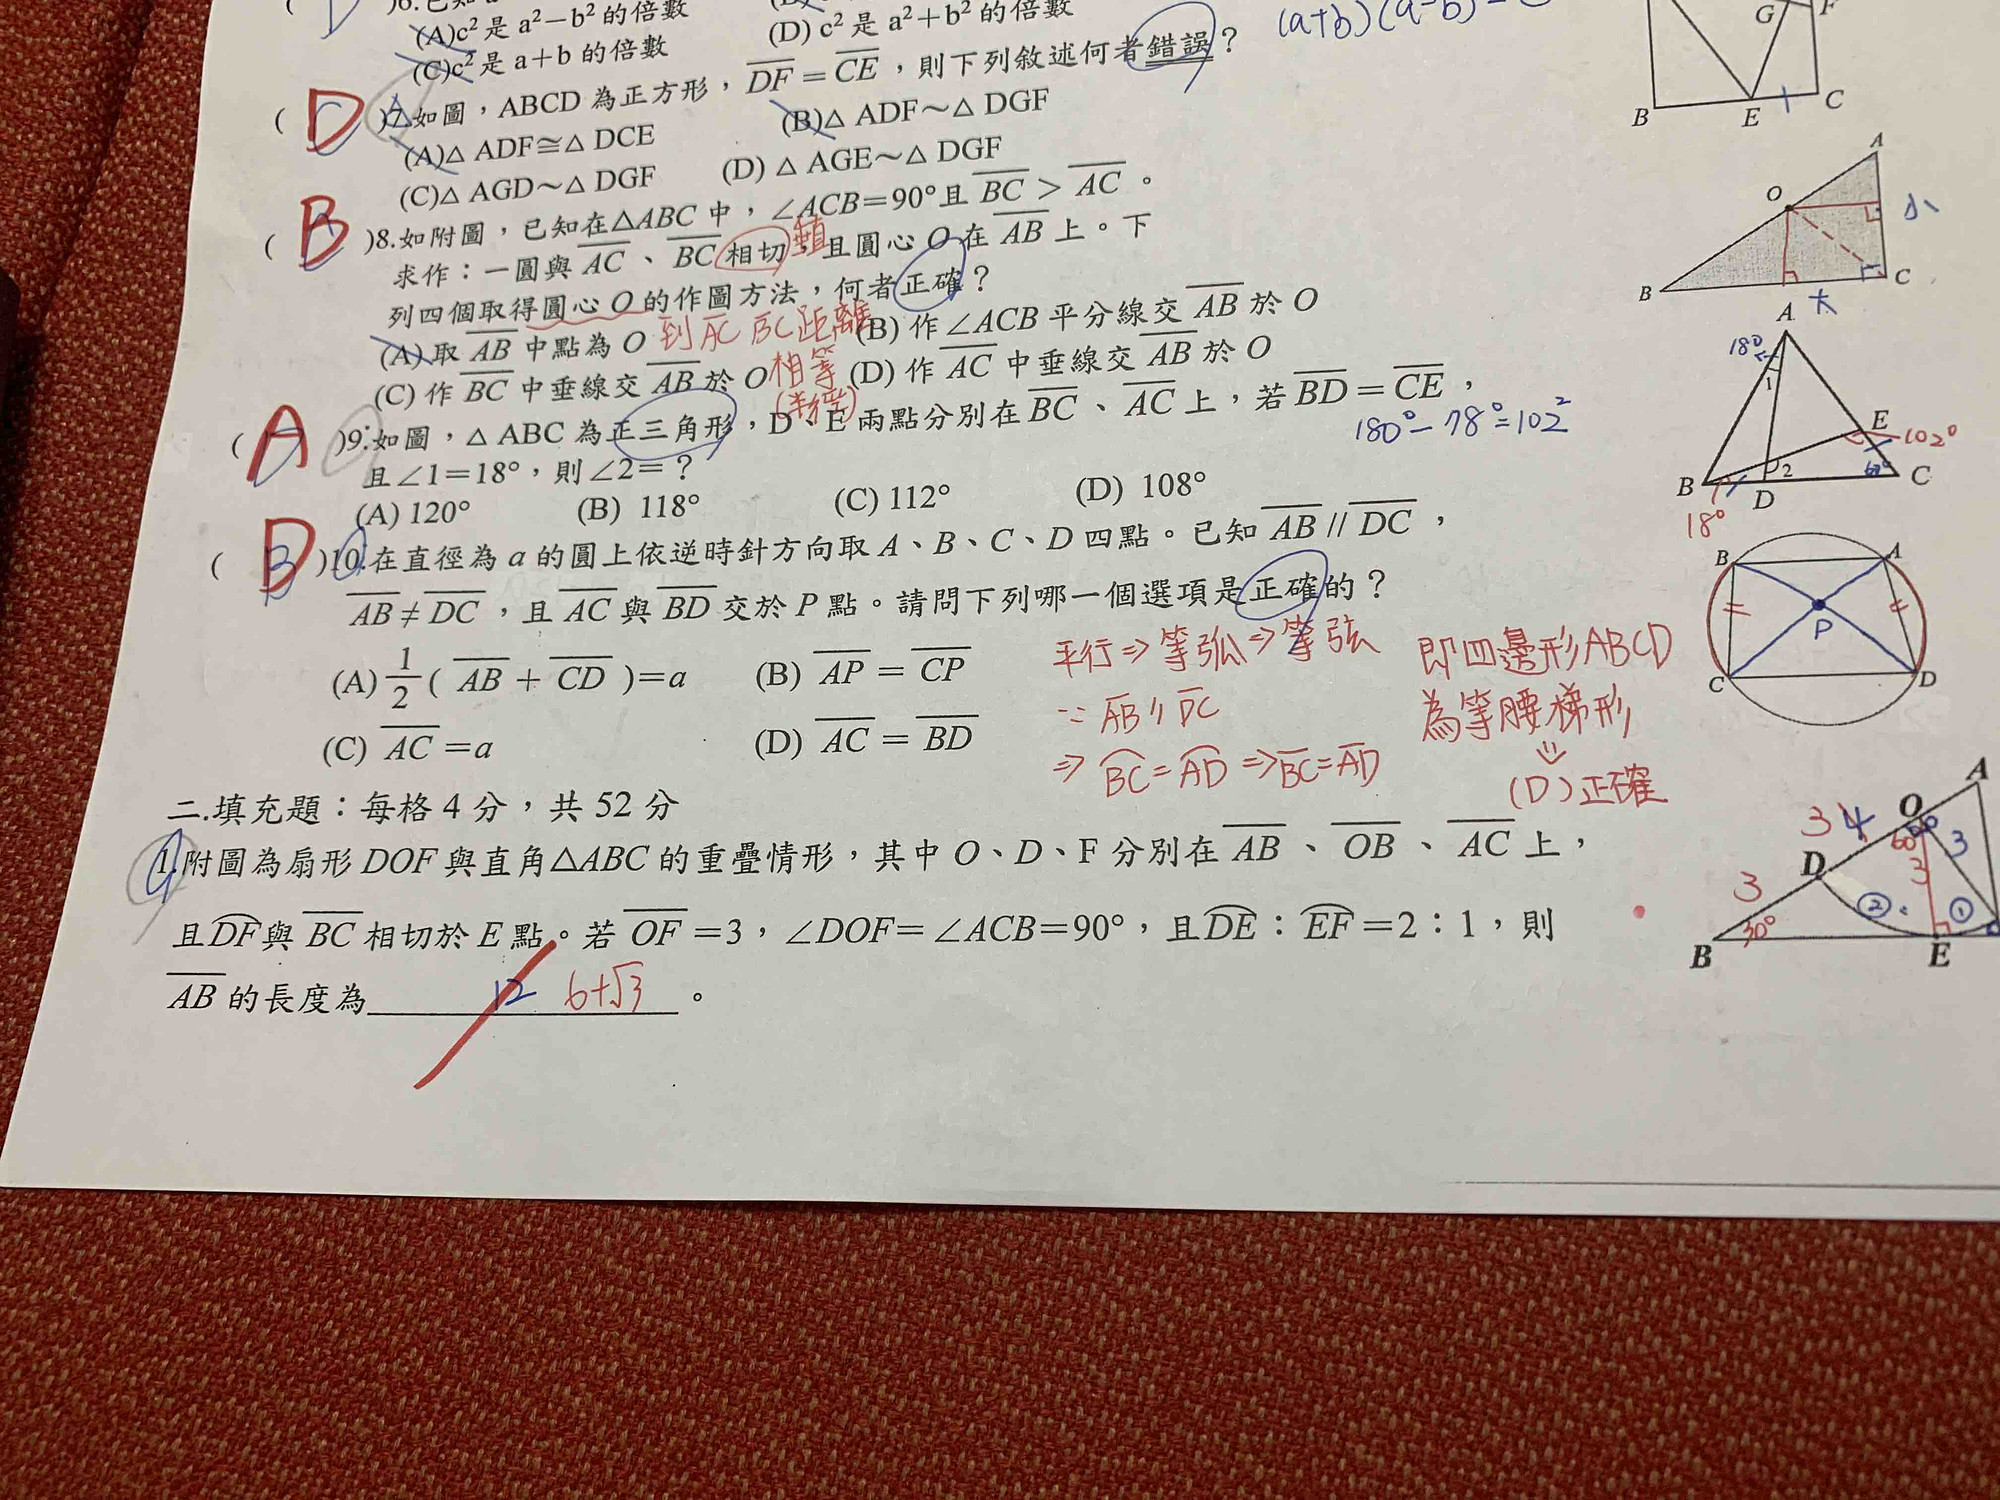 (A)c²是 a²－b² 的倍數
(D) c² 是 a²＋b² 的倍數
(a+b)(a-b)=
(C)c²是 a＋b 的倍數
( D )7.如圖，ABCD 為正方形，DF＝CE，則下列敘述何者錯誤？
(A)△ ADF≅△ DCE
(B)△ ADF～△ DGF
(C)△ AGD～△ DGF
(D) △ AGE～△ DGF
G F
B E C
( B )8.如附圖，已知在△ABC 中，∠ACB＝90°且 BC > AC。
求作：一圓與 AC、BC 相切，且圓心 O 在 AB 上。下
列四個取得圓心 O 的作圖方法，何者正確？
(A)取 AB 中點為 O
到 AC BC 距離
相等
(半徑)
(B) 作∠ACB 平分線交 AB 於 O
(C) 作 BC 中垂線交 AB 於 O
(D) 作 AC 中垂線交 AB 於 O
A
O
小
B
C
大
( A )9.如圖，△ ABC 為正三角形，D、E 兩點分別在 BC、AC 上，若 BD＝CE，
180°-78°=102°
且∠1＝18°，則∠2＝？
(A) 120°
(B) 118°
(C) 112°
(D) 108°
A
18°
1
E
102°
2
60°
B D C
18°
( D )10.在直徑為 a 的圓上依逆時針方向取 A、B、C、D 四點。已知 AB // DC，
AB ≠ DC，且 AC 與 BD 交於 P 點。請問下列哪一個選項是正確的？
(A) 1/2 ( AB ＋ CD )＝a
(B) AP ＝ CP
(C) AC ＝a
(D) AC ＝ BD
平行⇒等弧⇒等弦
∵ AB // DC
⇒ BC=AD ⇒ BC=AD
即四邊形ABCD
為等腰梯形
⇓
(D)正確
B A
P
C D
二.填充題：每格 4 分，共 52 分
1.附圖為扇形 DOF 與直角△ABC 的重疊情形，其中 O、D、F 分別在 AB、OB、AC 上，
且DF與 BC 相切於 E 點。若 OF ＝3，∠DOF＝∠ACB＝90°，且DE：EF＝2：1，則
AB 的長度為 12 6+√3 。
A
O
3
60°
D
3
3
3
② : ①
30°
B E